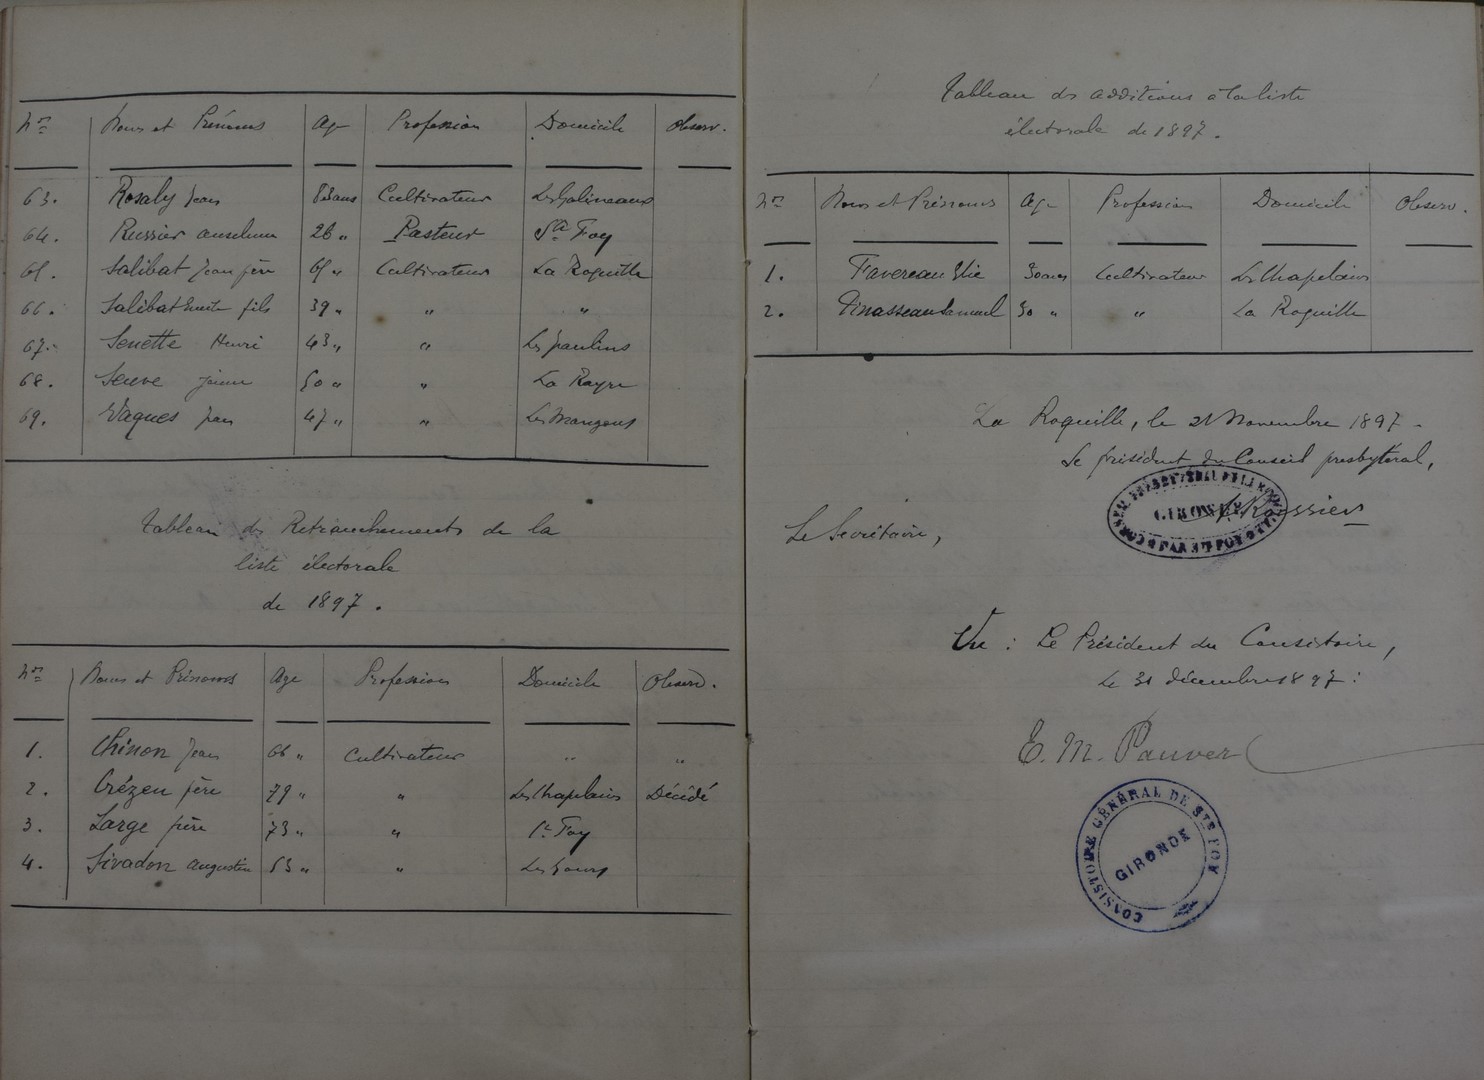 Nos Noms et Prénoms Age Profession Domicile Observ.
63. Rosaly Jean 83 ans Cultivateur Les Galineaux
64. Russier Anselme 26 " Pasteur Ste Foy
65. Salibat Jean père 65 " Cultivateur La Roquille
66. Salibat fils 39 " " "
67. Senette Henri 43 " " Les Jaulins
68. Seuve 50 " " La Rayre
69. Vaques Jean 47 " " Les Mangons
Tableau des Retranchements de la
liste électorale
de 1897.
Nos Noms et Prénoms Age Profession Domicile Observ.
1. Chinon Jean 66 " Cultivateur " "
2. Crézen père 79 " " Les Chapelains Décédé
3. Large père 73 " " Ste Foy
4. Sivadon Augustin 53 " " Les
Tableau des additions à la liste
électorale de 1897.
Nos Noms et Prénoms Age Profession Domicile Observ.
1. Favereau Elie 30 ans Cultivateur Les Chapelains
2. Pinasseau Samuel 30 " " La Roquille
La Roquille, le 21 Novembre 1897.
Le président du Conseil presbytéral,
GIRONDE
Roussier
Le Secrétaire,
Vu : Le Président du Consistoire,
Le 31 décembre 1897 :
E. M. Pauver
CONSISTOIRE GÉNÉRAL DE STE FOY
GIRONDE